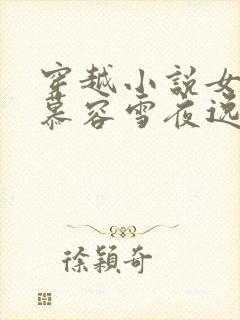 穿越小说女
慕容雪夜逸
徐颖奇